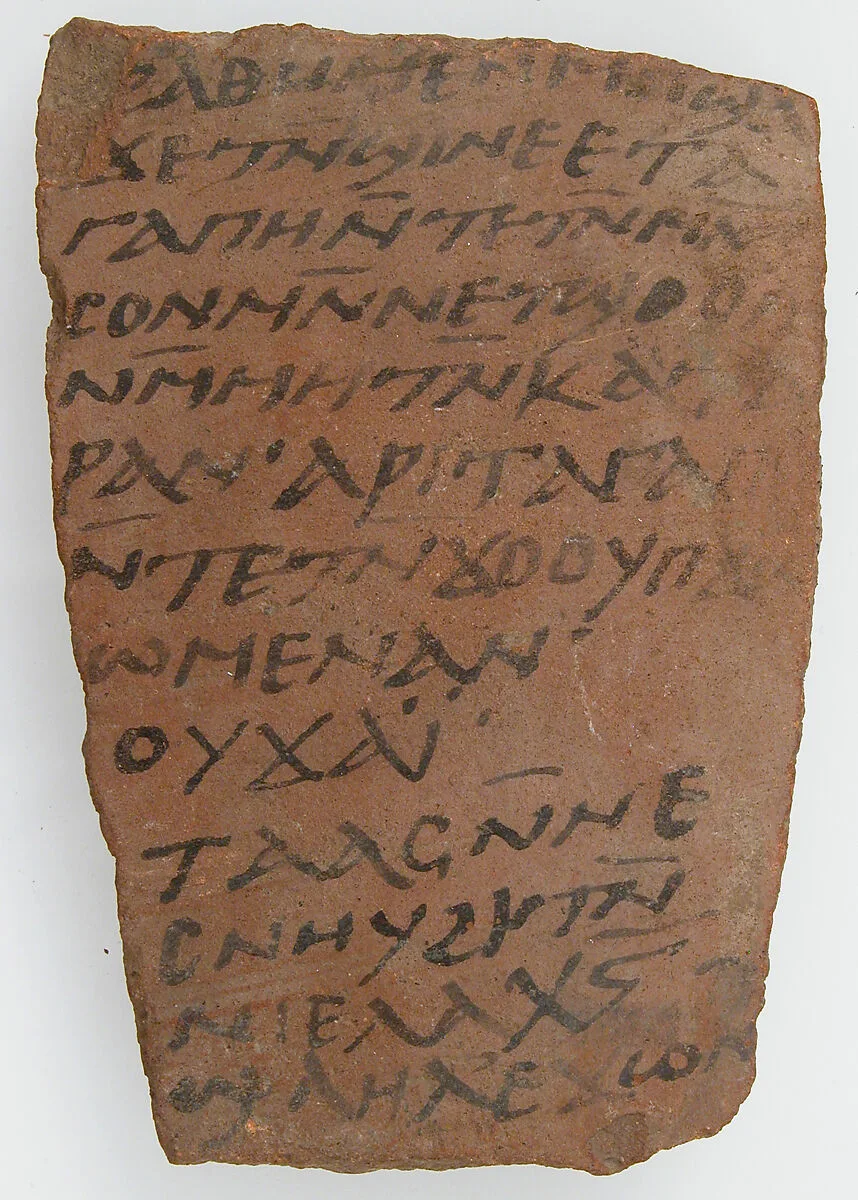 ϩⲁⲑⲏ ⲙⲉⲛ ⲙⲡϣⲁ
ϫⲉ ⲧⲛ̄ϣⲓⲛⲉ ⲉⲧⲁ
ⲅⲁⲡⲏ ⲛ̄ⲧⲉⲧⲛ̄ⲙⲛ
ⲥⲟⲛ ⲙⲛ̄ ⲛⲉⲧϣⲟⲟ
ⲛⲙ̄ⲙⲏⲧⲛ̄ ⲕⲁⲧⲁ
ⲣⲁⲛ· ⲁⲣⲓ ⲧⲁⲅⲁⲡ
ⲛ̄ⲧⲉⲧⲛ̄ϫⲟⲟⲩ ⲡϫ
ⲱⲙⲉ ⲛⲁⲛ·
ⲟⲩϫⲁⲓ̈·
ⲧⲁⲁⲥ ⲛ̄ⲛⲉ
ⲥⲛⲏⲩ ϩⲓⲧⲛ̄
ⲛⲓⲉⲗⲁⲭⲥ̄
ϣⲗⲏⲗ ⲉϫⲱⲛ